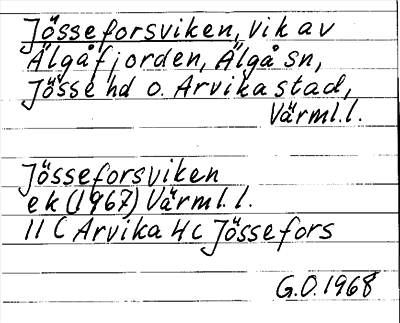 Jösseforsviken, vik av
Älgåfjorden, Älgå sn,
Jösse hd o. Arvika stad,
Värml.l.
Jösseforsviken
ek (1967) Värml.l.
11 C Arvika 4c Jössefors
G.O. 1968